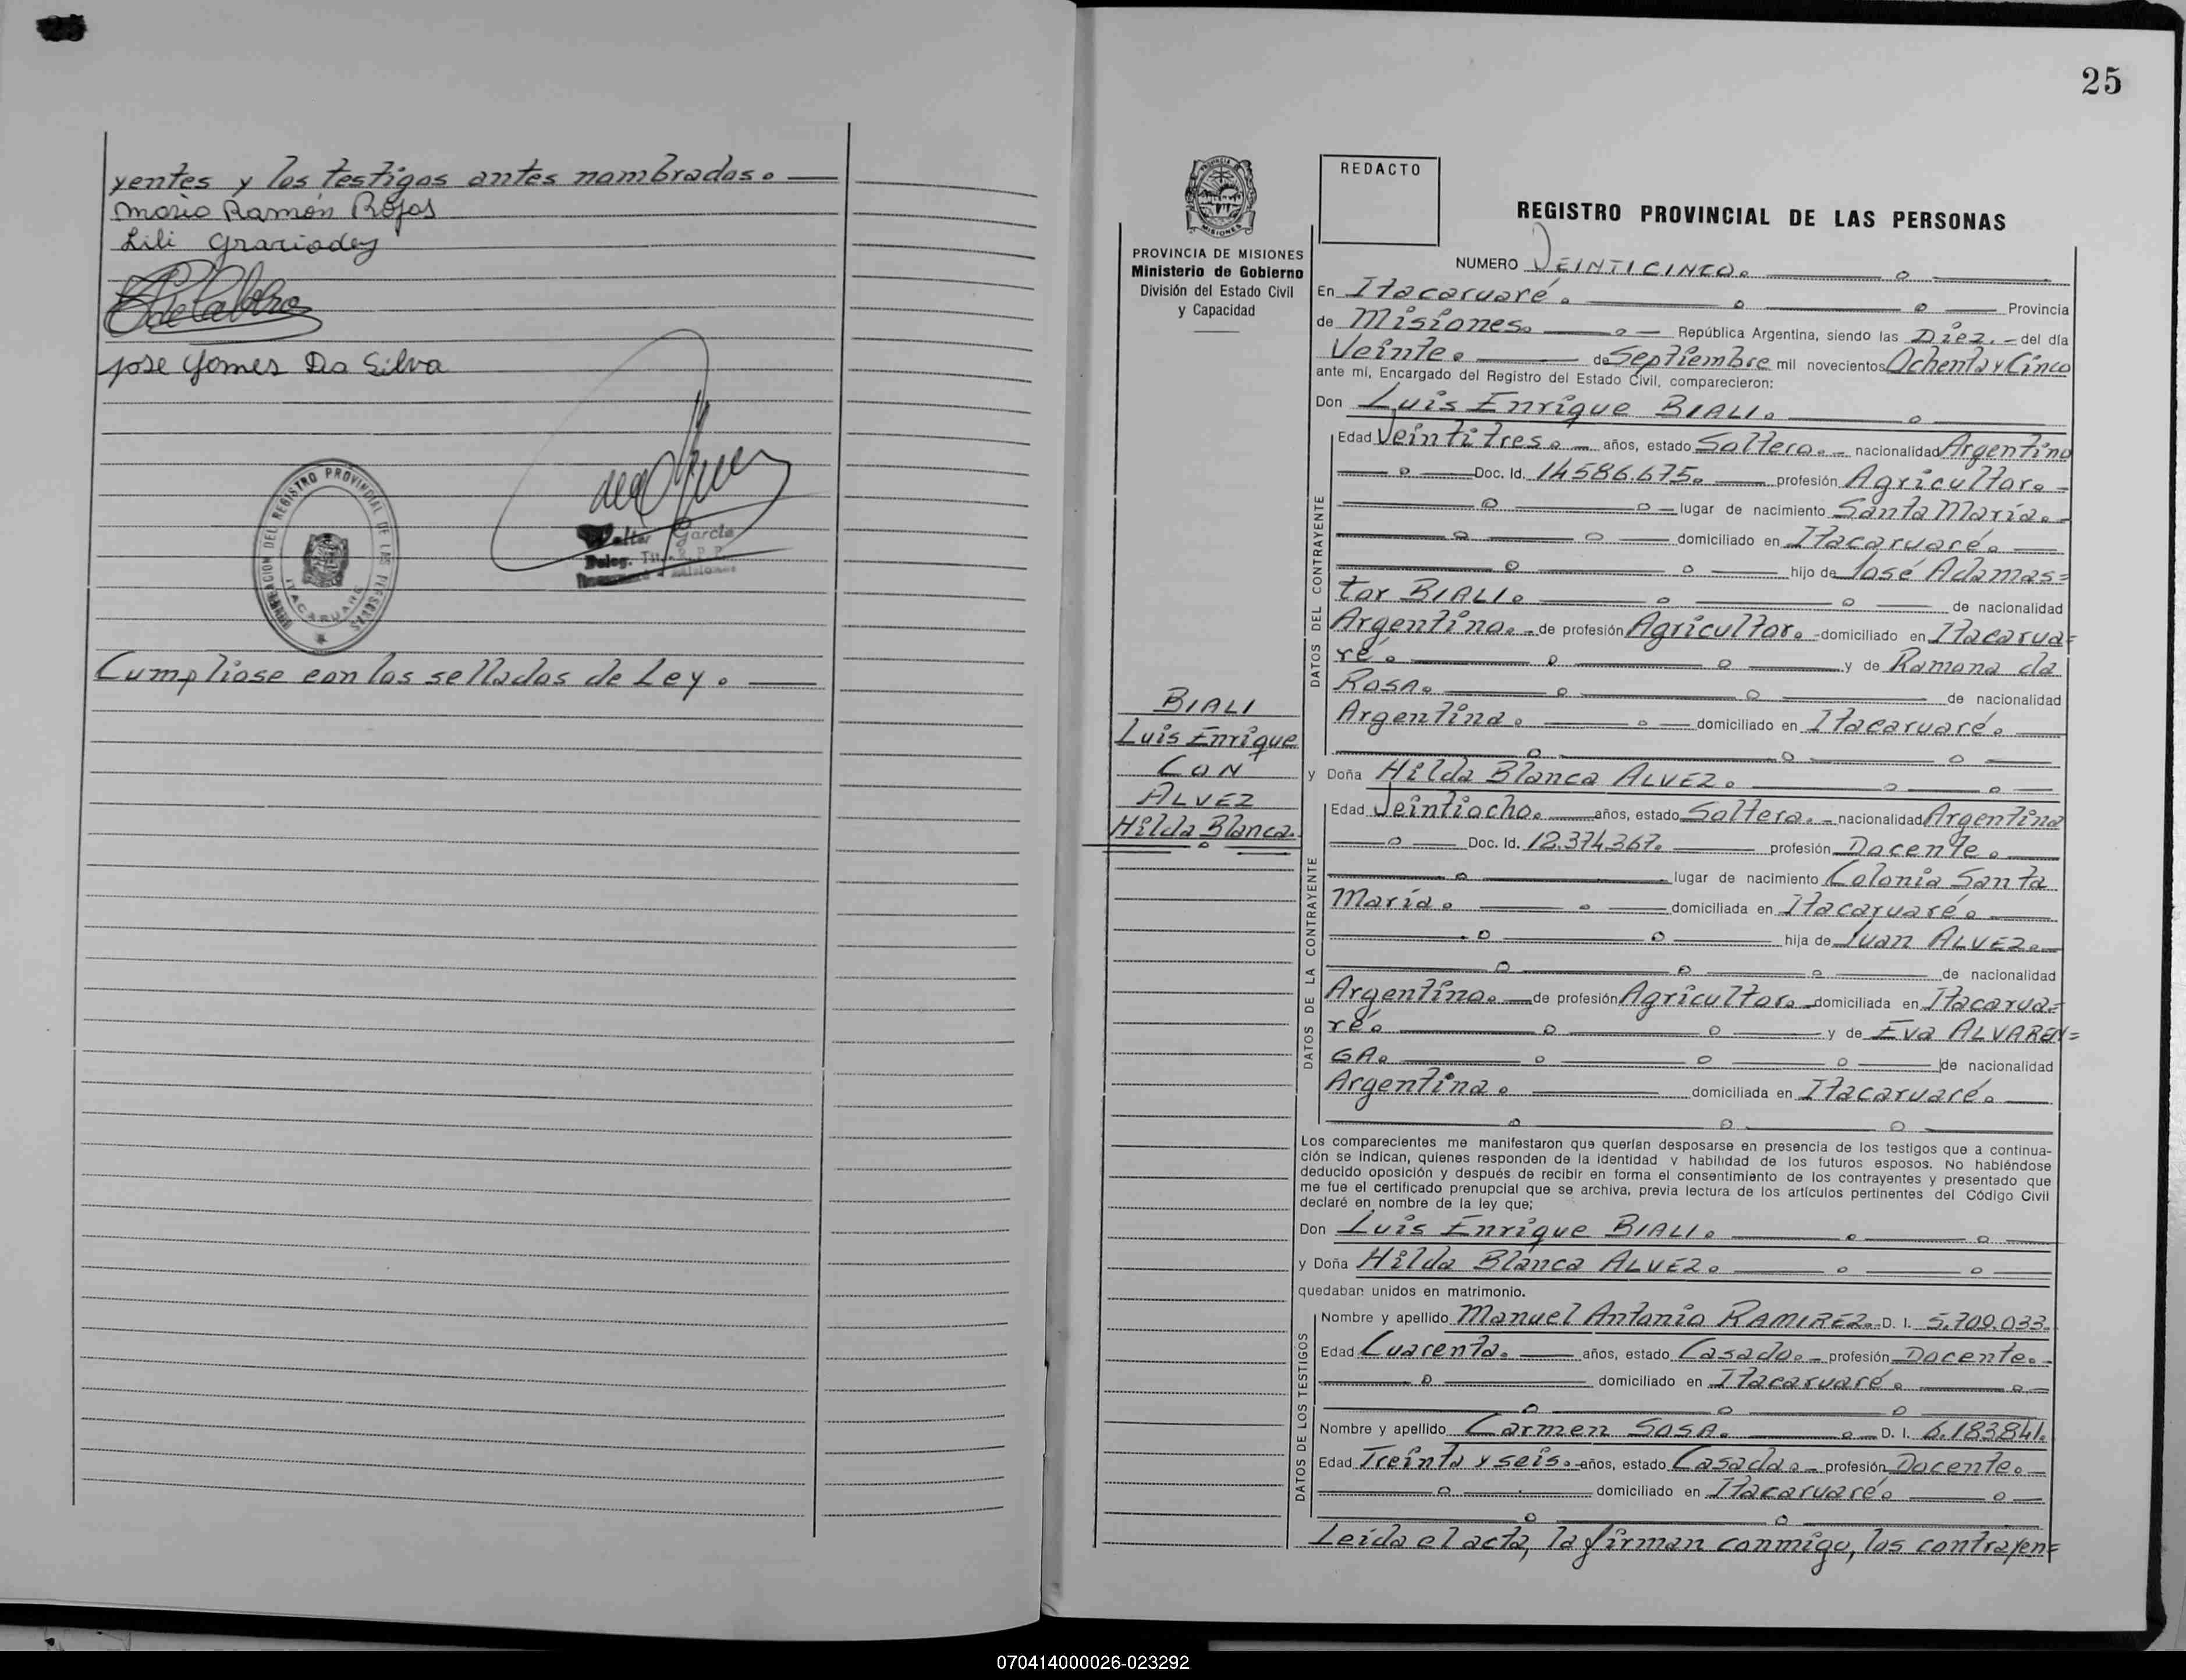 yentes y los testigos antes nombrados.
Mario Ramón Rojas
Lili Graciadey
Jose Gomes Da Silva
DEL REGISTRO PROVINCIAL DE LAS PERSONAS
ITACARUARE
Walter Garcia
Deleg. Tit. R. P. P.
Misiones
Cumpliose con los sellados de Ley.
25
REDACTO
PROVINCIA
MISIONES
REGISTRO PROVINCIAL DE LAS PERSONAS
PROVINCIA DE MISIONES
Ministerio de Gobierno
División del Estado Civil
y Capacidad
BIALI
Luis Enrique
CON
ALVEZ
Hilda Blanca.
NUMERO VEINTICINCO.
En Itacaruaré. Provincia
de Misiones. República Argentina, siendo las Diez. del día
Veinte. de Septiembre mil novecientos Ochenta y Cinco
ante mí, Encargado del Registro del Estado Civil, comparecieron:
Don Luis Enrique BIALI.
DATOS DEL CONTRAYENTE
Edad Veintitres. años, estado Soltero. nacionalidad Argentino
Doc. Id. 14586.675. profesión Agricultor.
lugar de nacimiento Santa María.
domiciliado en Itacaruaré.
hijo de José Adamas=
tor BIALI. de nacionalidad
Argentino. de profesión Agricultor. domiciliado en Itacarua=
ré. y de Ramona da
ROSA. de nacionalidad
Argentina. domiciliado en Itacaruaré.
y Doña Hilda Blanca ALVEZ.
DATOS DE LA CONTRAYENTE
Edad Veintiocho. años, estado Soltera. nacionalidad Argentina
Doc. Id. 12.374.367. profesión Docente.
lugar de nacimiento Colonia Santa
María. domiciliada en Itacaruaré.
hija de Juan ALVEZ.
de nacionalidad
Argentino. de profesión Agricultor. domiciliada en Itacarua=
ré. y de Eva ALVAREN=
GA. de nacionalidad
Argentina. domiciliada en Itacaruaré.
Los comparecientes me manifestaron que querían desposarse en presencia de los testigos que a continua-
ción se indican, quienes responden de la identidad y habilidad de los futuros esposos. No habiéndose
deducido oposición y después de recibir en forma el consentimiento de los contrayentes y presentado que
me fue el certificado prenupcial que se archiva, previa lectura de los artículos pertinentes del Código Civil
declaré en nombre de la ley que;
Don Luis Enrique BIALI.
y Doña Hilda Blanca ALVEZ.
quedaban unidos en matrimonio.
DATOS DE LOS TESTIGOS
Nombre y apellido Manuel Antonio RAMIREZ. D. I. 5.709.033.
Edad Cuarenta. años, estado Casado. profesión Docente.
domiciliado en Itacaruaré.
Nombre y apellido Carmen SOSA. D. I. 6.183841.
Edad Treinta y seis. años, estado Casada. profesión Docente.
domiciliado en Itacaruaré.
Leída el acta, la firman conmigo, los contrayen=
070414000026-023292